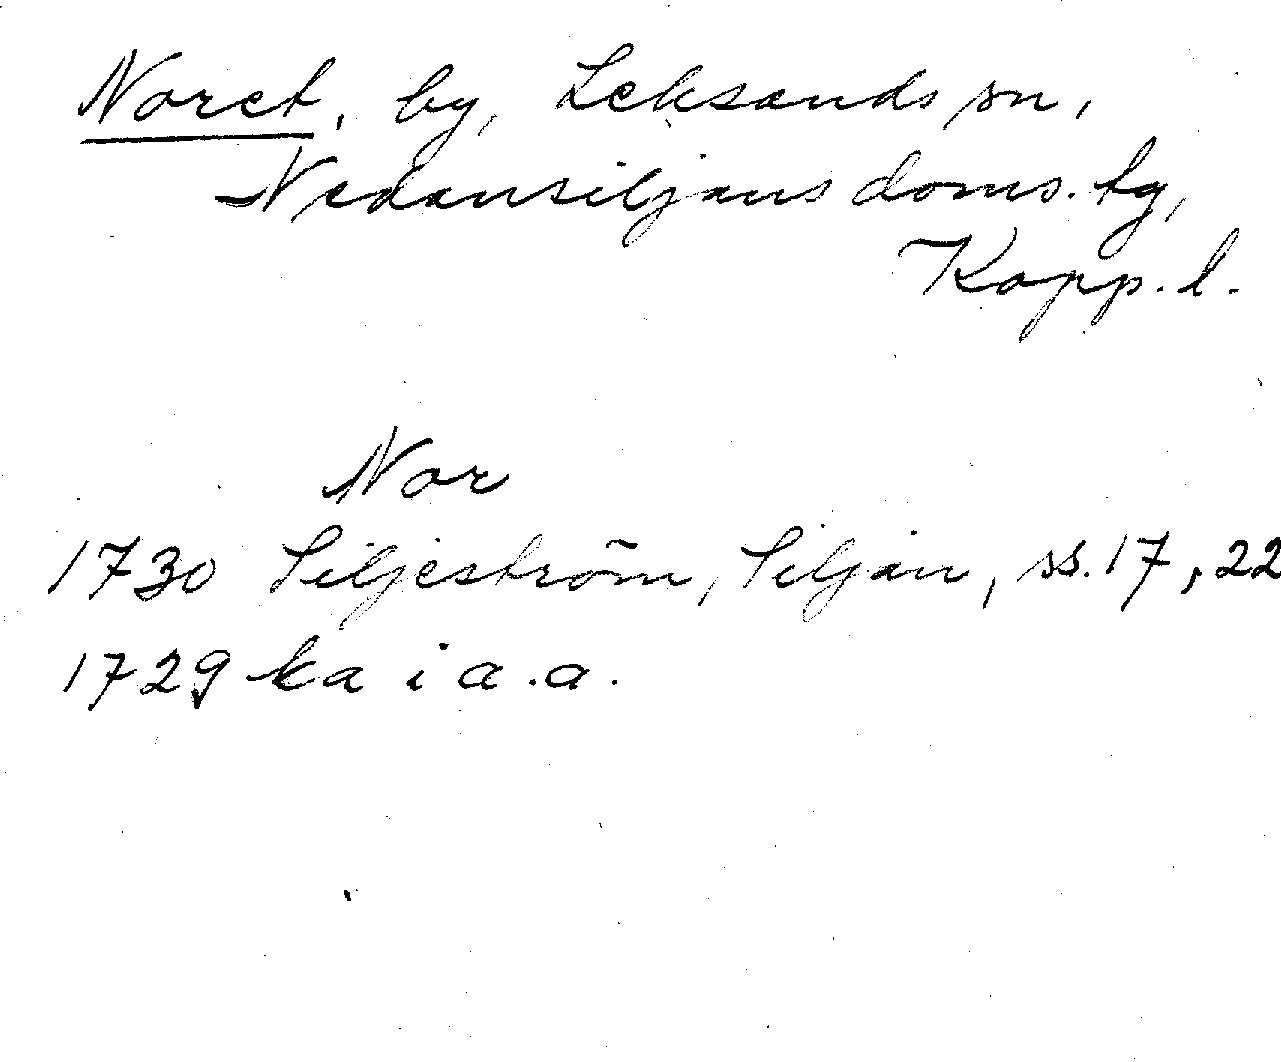 Noret, by, Leksands sn,
Nedansiljans doms. tg,
Kopp. l.
Nor
1730 Siljeström, Siljan, ss. 17, 22
1729 ka i a.a.